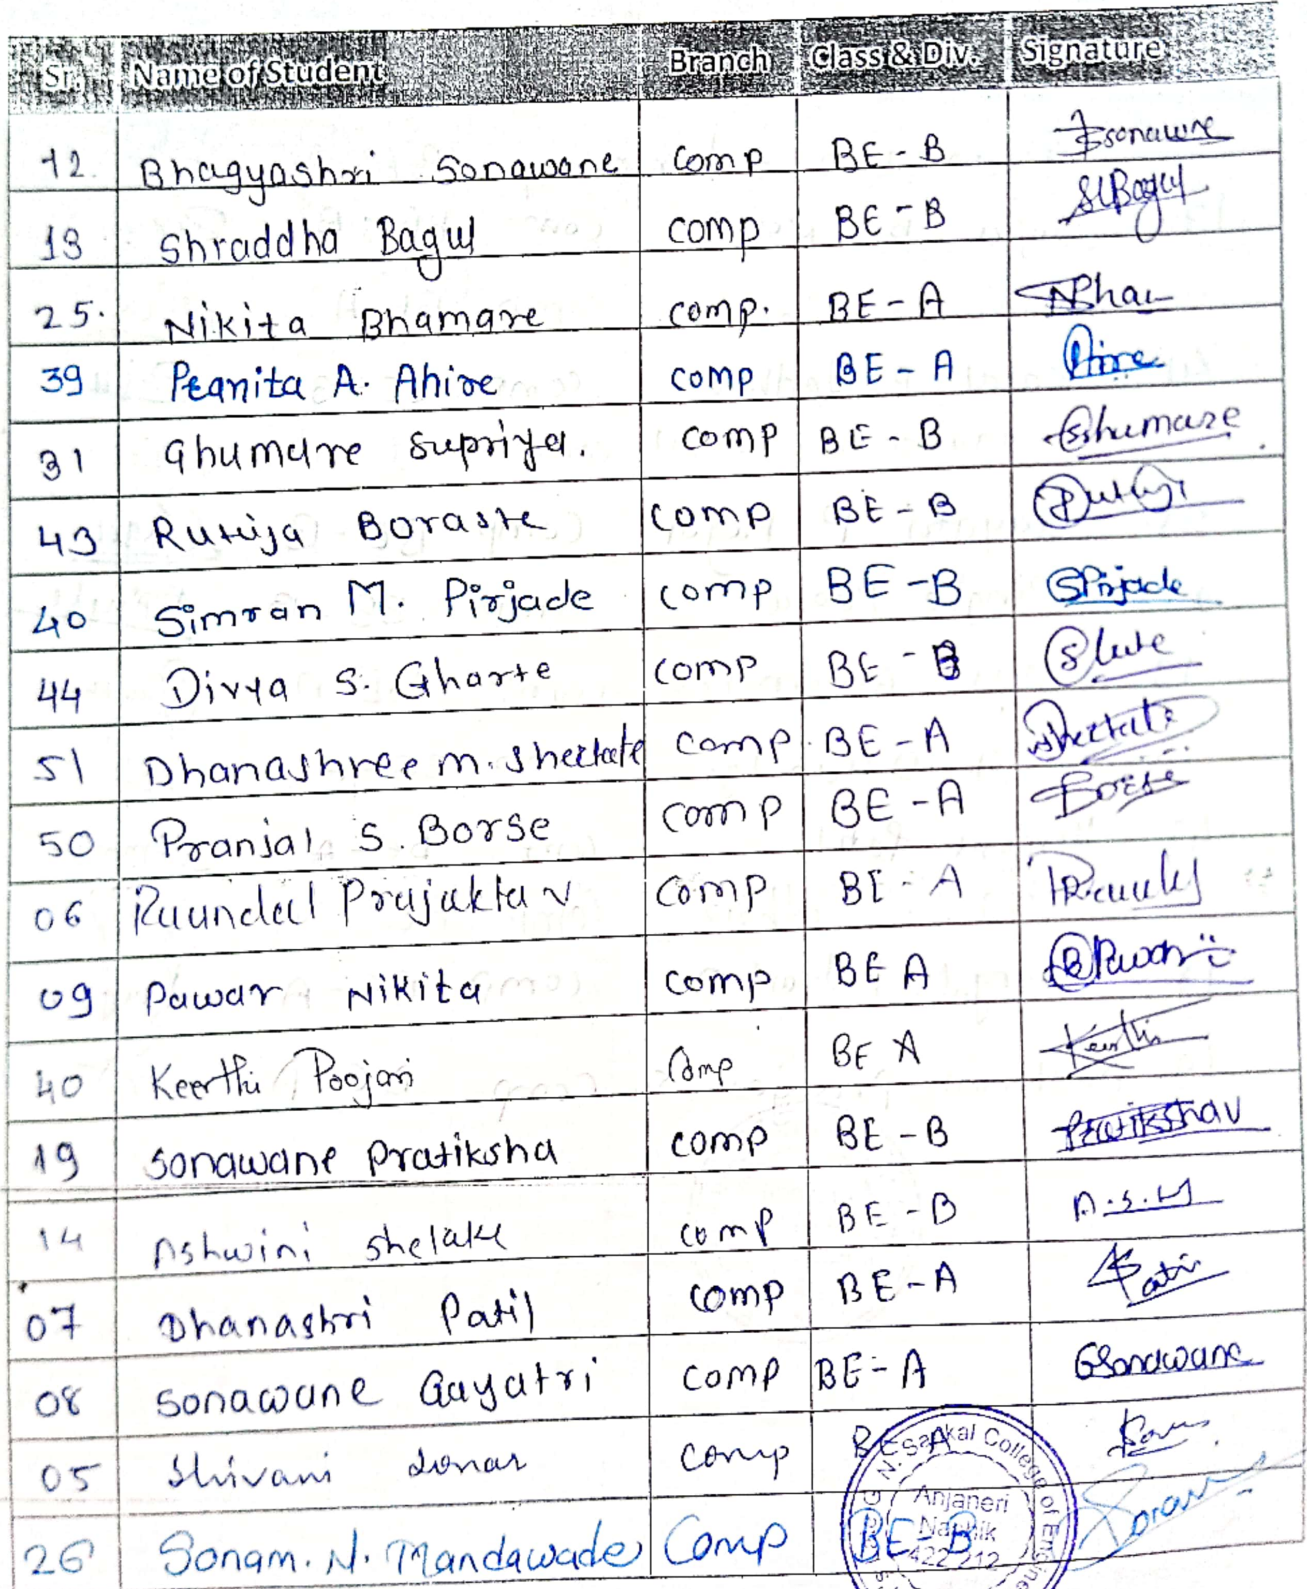 Sr. Name of Student Branch Class & Div. Signature
12. Bhagyashri Sonawane comp BE-B Bsonawne
13 Shraddha Bagul comp BE-B SLBagul
25. Nikita Bhamare comp. BE-A NBha
39 Pranita A. Ahire comp BE-A Ahire
31 Ghumare Supriya. comp BE-B Ghumare
43 Rutuja Boraste comp BE-B Rutuja
40 Simran M. Pirjade comp BE-B SPirjade
44 Divya S. Gharte comp BE-B
51 Dhanashree M. Shertate comp. BE-A Shertate
50 Pranjal S. Borse comp BE-A Borse
06 Raundal Prajakta V comp BE-A
09 Pawar Nikita comp BE A Pawar
40 Keerthi Poojari Comp BE A Keerthi
19 Sonawane Pratiksha comp BE-B PratikshaV
14 Ashwini Shelake comp BE-B A.S.
07 Dhanashri Patil comp BE-A Patil
08 Sonawane Gayatri comp BE-A GSonawane
05 Shivani Sonar comp BE A
26 Sonam. N. Mandawade Comp BE-B
G. N. Sapkal College of Engine
Anjaneri
Nashik
422 212